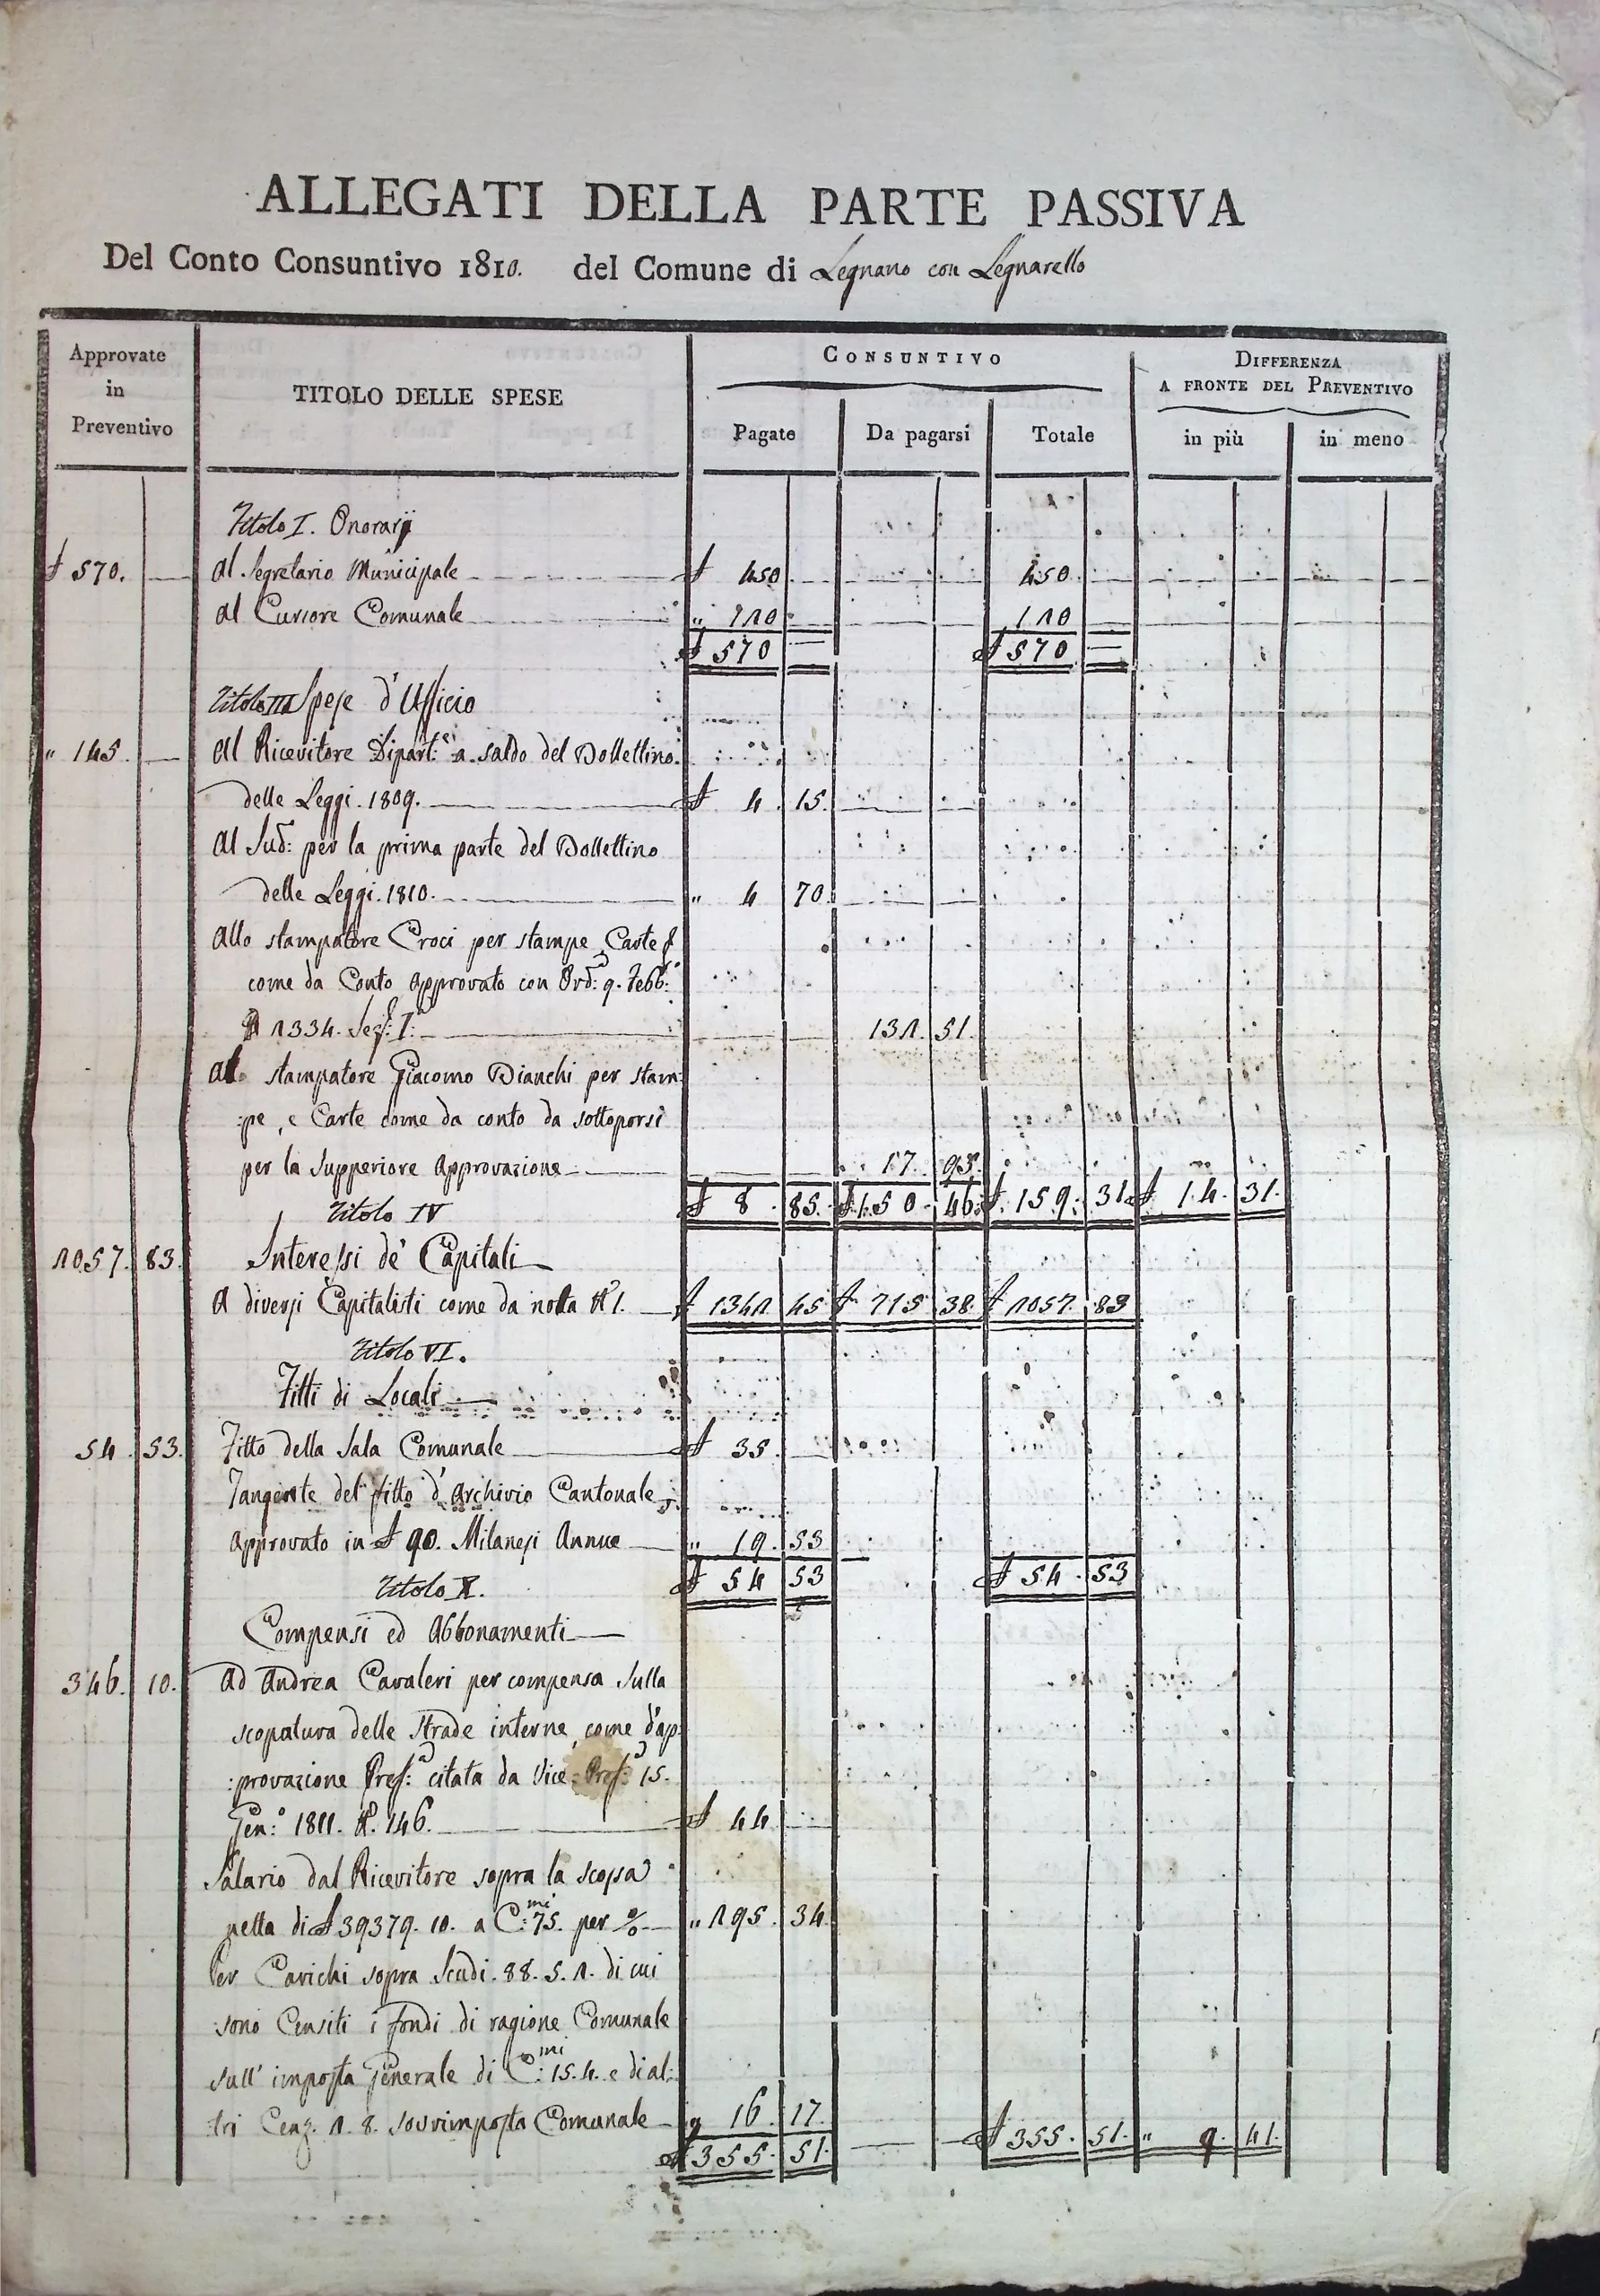 ALLEGATI DELLA PARTE PASSIVA
Del Conto Consuntivo 1810. del Comune di Legnano con Legnarello
Approvate in Preventivo
TITOLO DELLE SPESE
CONSUNTIVO
DIFFERENZA A FRONTE DEL PREVENTIVO
Pagate Da pagarsi Totale in più in meno
Titolo I. Onorarj
£ 570. — Al Segretario Municipale £ 450 450
Al Cursore Comunale " 120 120
£ 570 £ 570
Titolo III Spese d'Ufficio
" 145. — Al Ricevitore Dipart:e a saldo del Bollettino
delle Leggi. 1809. £ 4. 15.
Al Sud: per la prima parte del Bollettino
delle Leggi. 1810. " 4 70.
Allo stampatore Croci per stampe, Carte
come da Conto approvato con Ord:a 9. Febb:o
N 2334. Sez: I:a 132. 51.
Allo stampatore Giacomo Bianchi per stam:
:pe, e Carte come da conto da sottoporsi
per la Supperiore approvazione 17. 95.
£ 8. 85. £ 150. 46. £ 159. 31. £ 14. 31.
Titolo IV
2057. 83. Interessi de' Capitali
A diversi Capitalisti come da notta N.° 1. £ 1342 45 £ 715 38. £ 2057. 83
Titolo VI.
Fitti di Locali
54. 53. Fitto della Sala Comunale £ 35.
Tangente del fitto d'Archivio Cantonale
approvato in £ 90. Milanesi Annue " 19. 53
£ 54 53 £ 54. 53
Titolo X.
Compensi ed Abbonamenti
346. 10. Ad Andrea Cavaleri per compenso sulla
scopatura delle Strade interne, come d'ap:
:provazione Pref:a citata da Vice-Pref:a 15.
Gen:o 1811. N. 146. £ 44
Salario dal Ricevitore sopra la scossa
netta di £ 39379. 10. a C:mi 75. per % " 295. 34.
Per Carichi sopra Scudi. 88. 5. 2. di cui
sono Censiti i fondi di ragione Comunale
sull'imposta Generale di C:mi 15. 4. e di al:
tri Cen. 2. 8. sovrimposta Comunale " 16. 17.
£ 355. 51. £ 355. 51. " 9. 41.